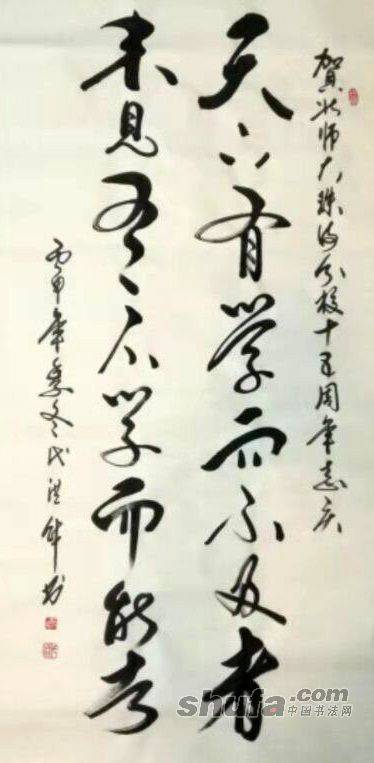 賀北师大珠海分校十五周年志庆
天下有学而不及者
未見有不学而能者
丙申年季冬
shufa.com
中国书法网